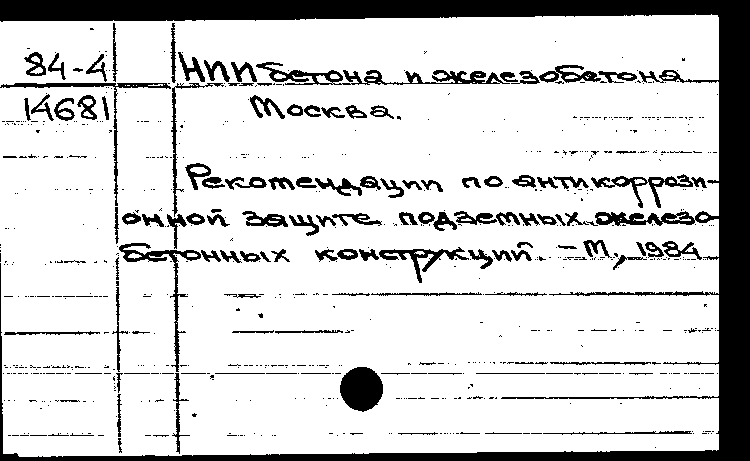 84-4 НИИ бетона и железобетона
14681 Москва.
Рекомендации по антикоррози-
онной защите подземных железо-
бетонных конструкций. - М., 1984